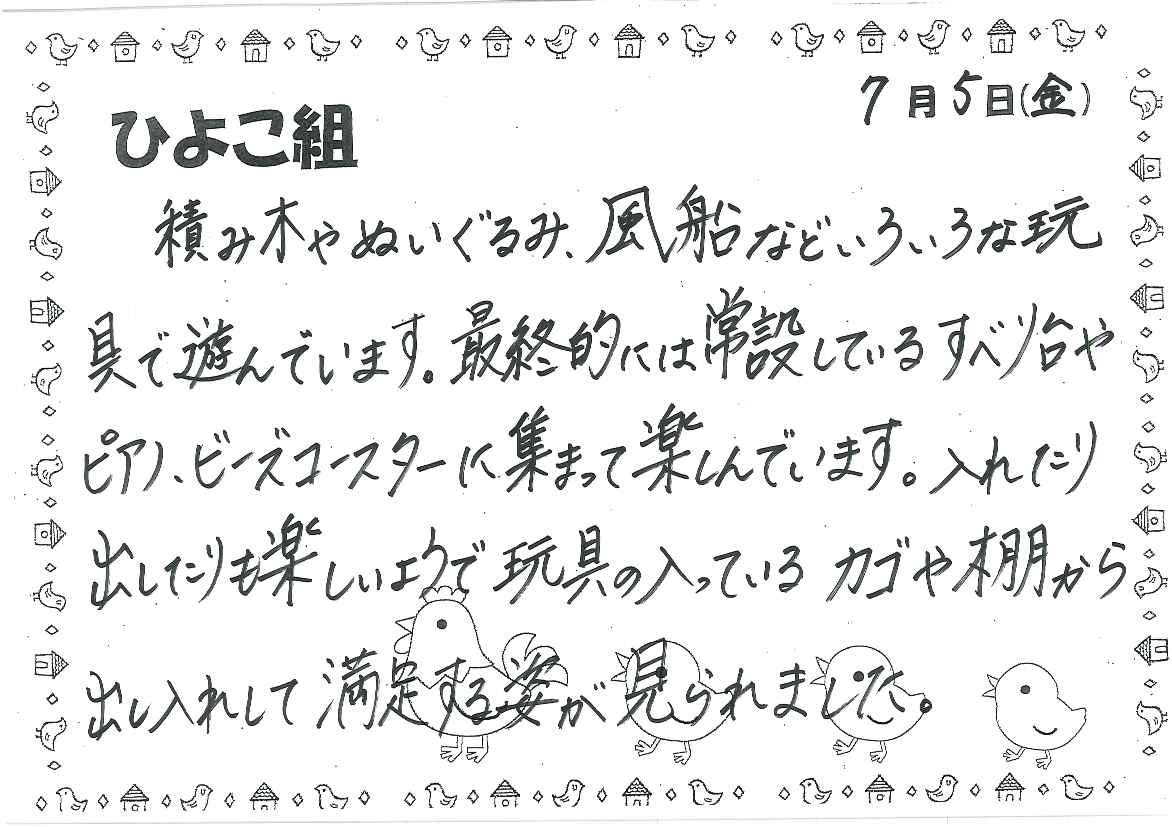 7月5日(金)
ひよこ組
積み木やぬいぐるみ、風船などいろいろな玩
具で遊んでいます。最終的には常設しているすべり台や
ピアノ、ビーズコースターに集まって楽しんでいます。入れたり
出したりも楽しいようで玩具の入っているカゴや棚から
出し入れして満足する姿が見られました。